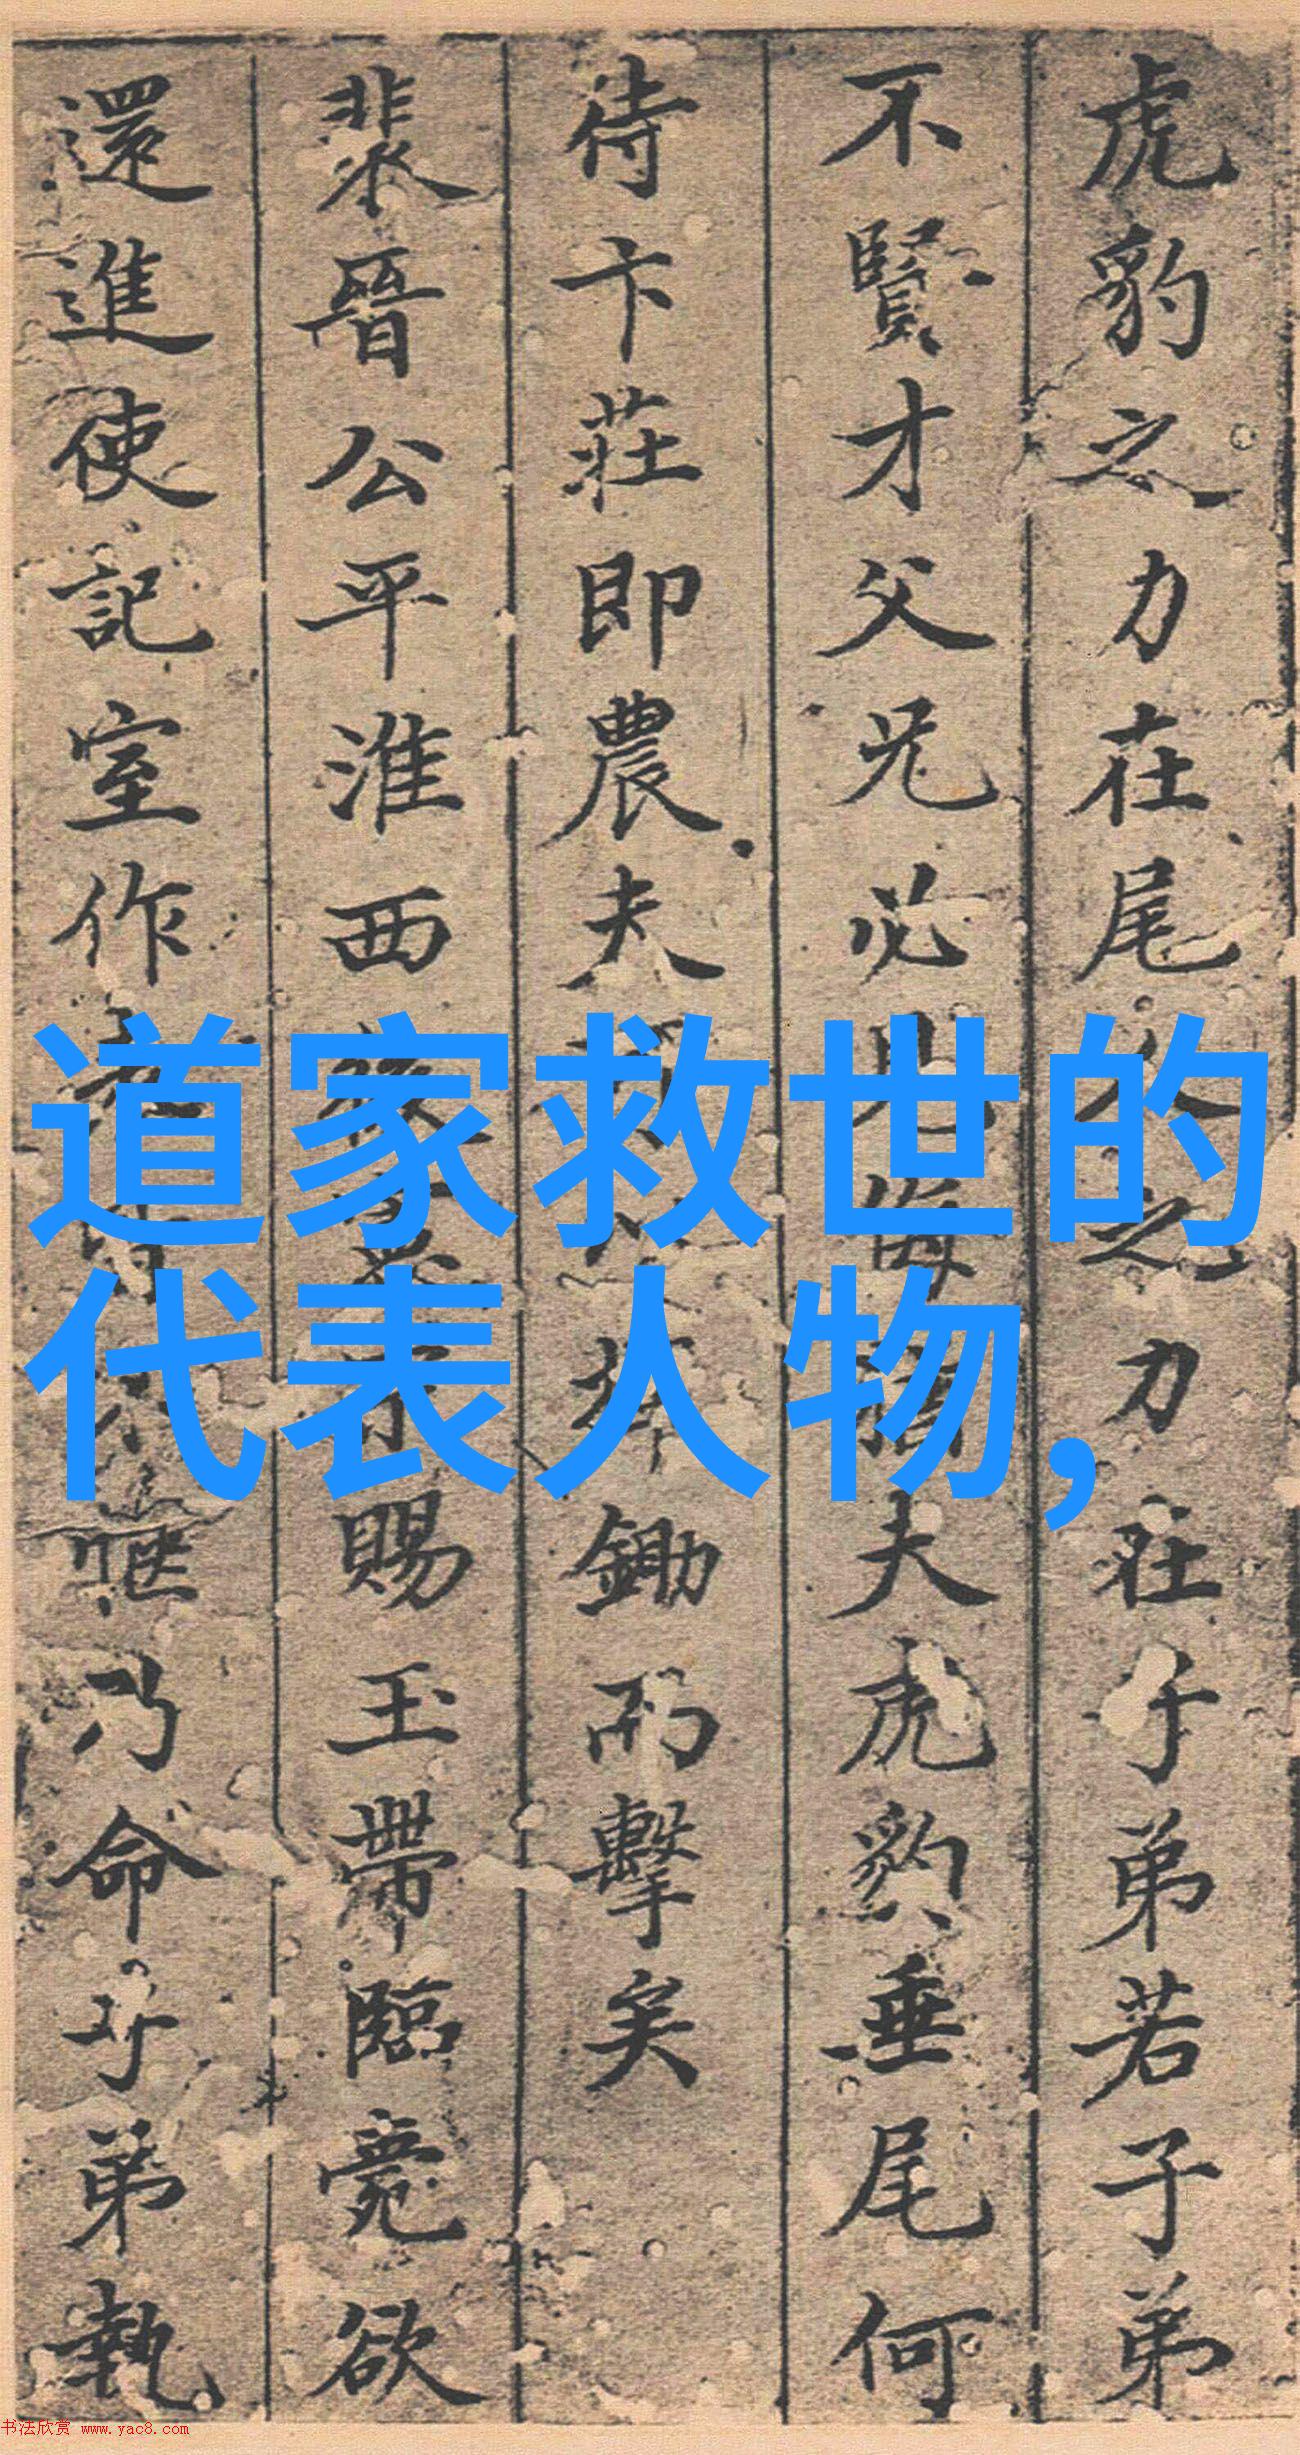 虎豹之力在尾人之力在子弟若子弟
不賢才父兄必見侮夫虎豹垂尾何
待卞莊即農夫鋤而擊矣
裴晉公平淮西後賜玉帶臨薨欲
還進使記室作表皆愜乃命子弟執
道家救世的
代表人物,
书法欣赏 www.yac8.com